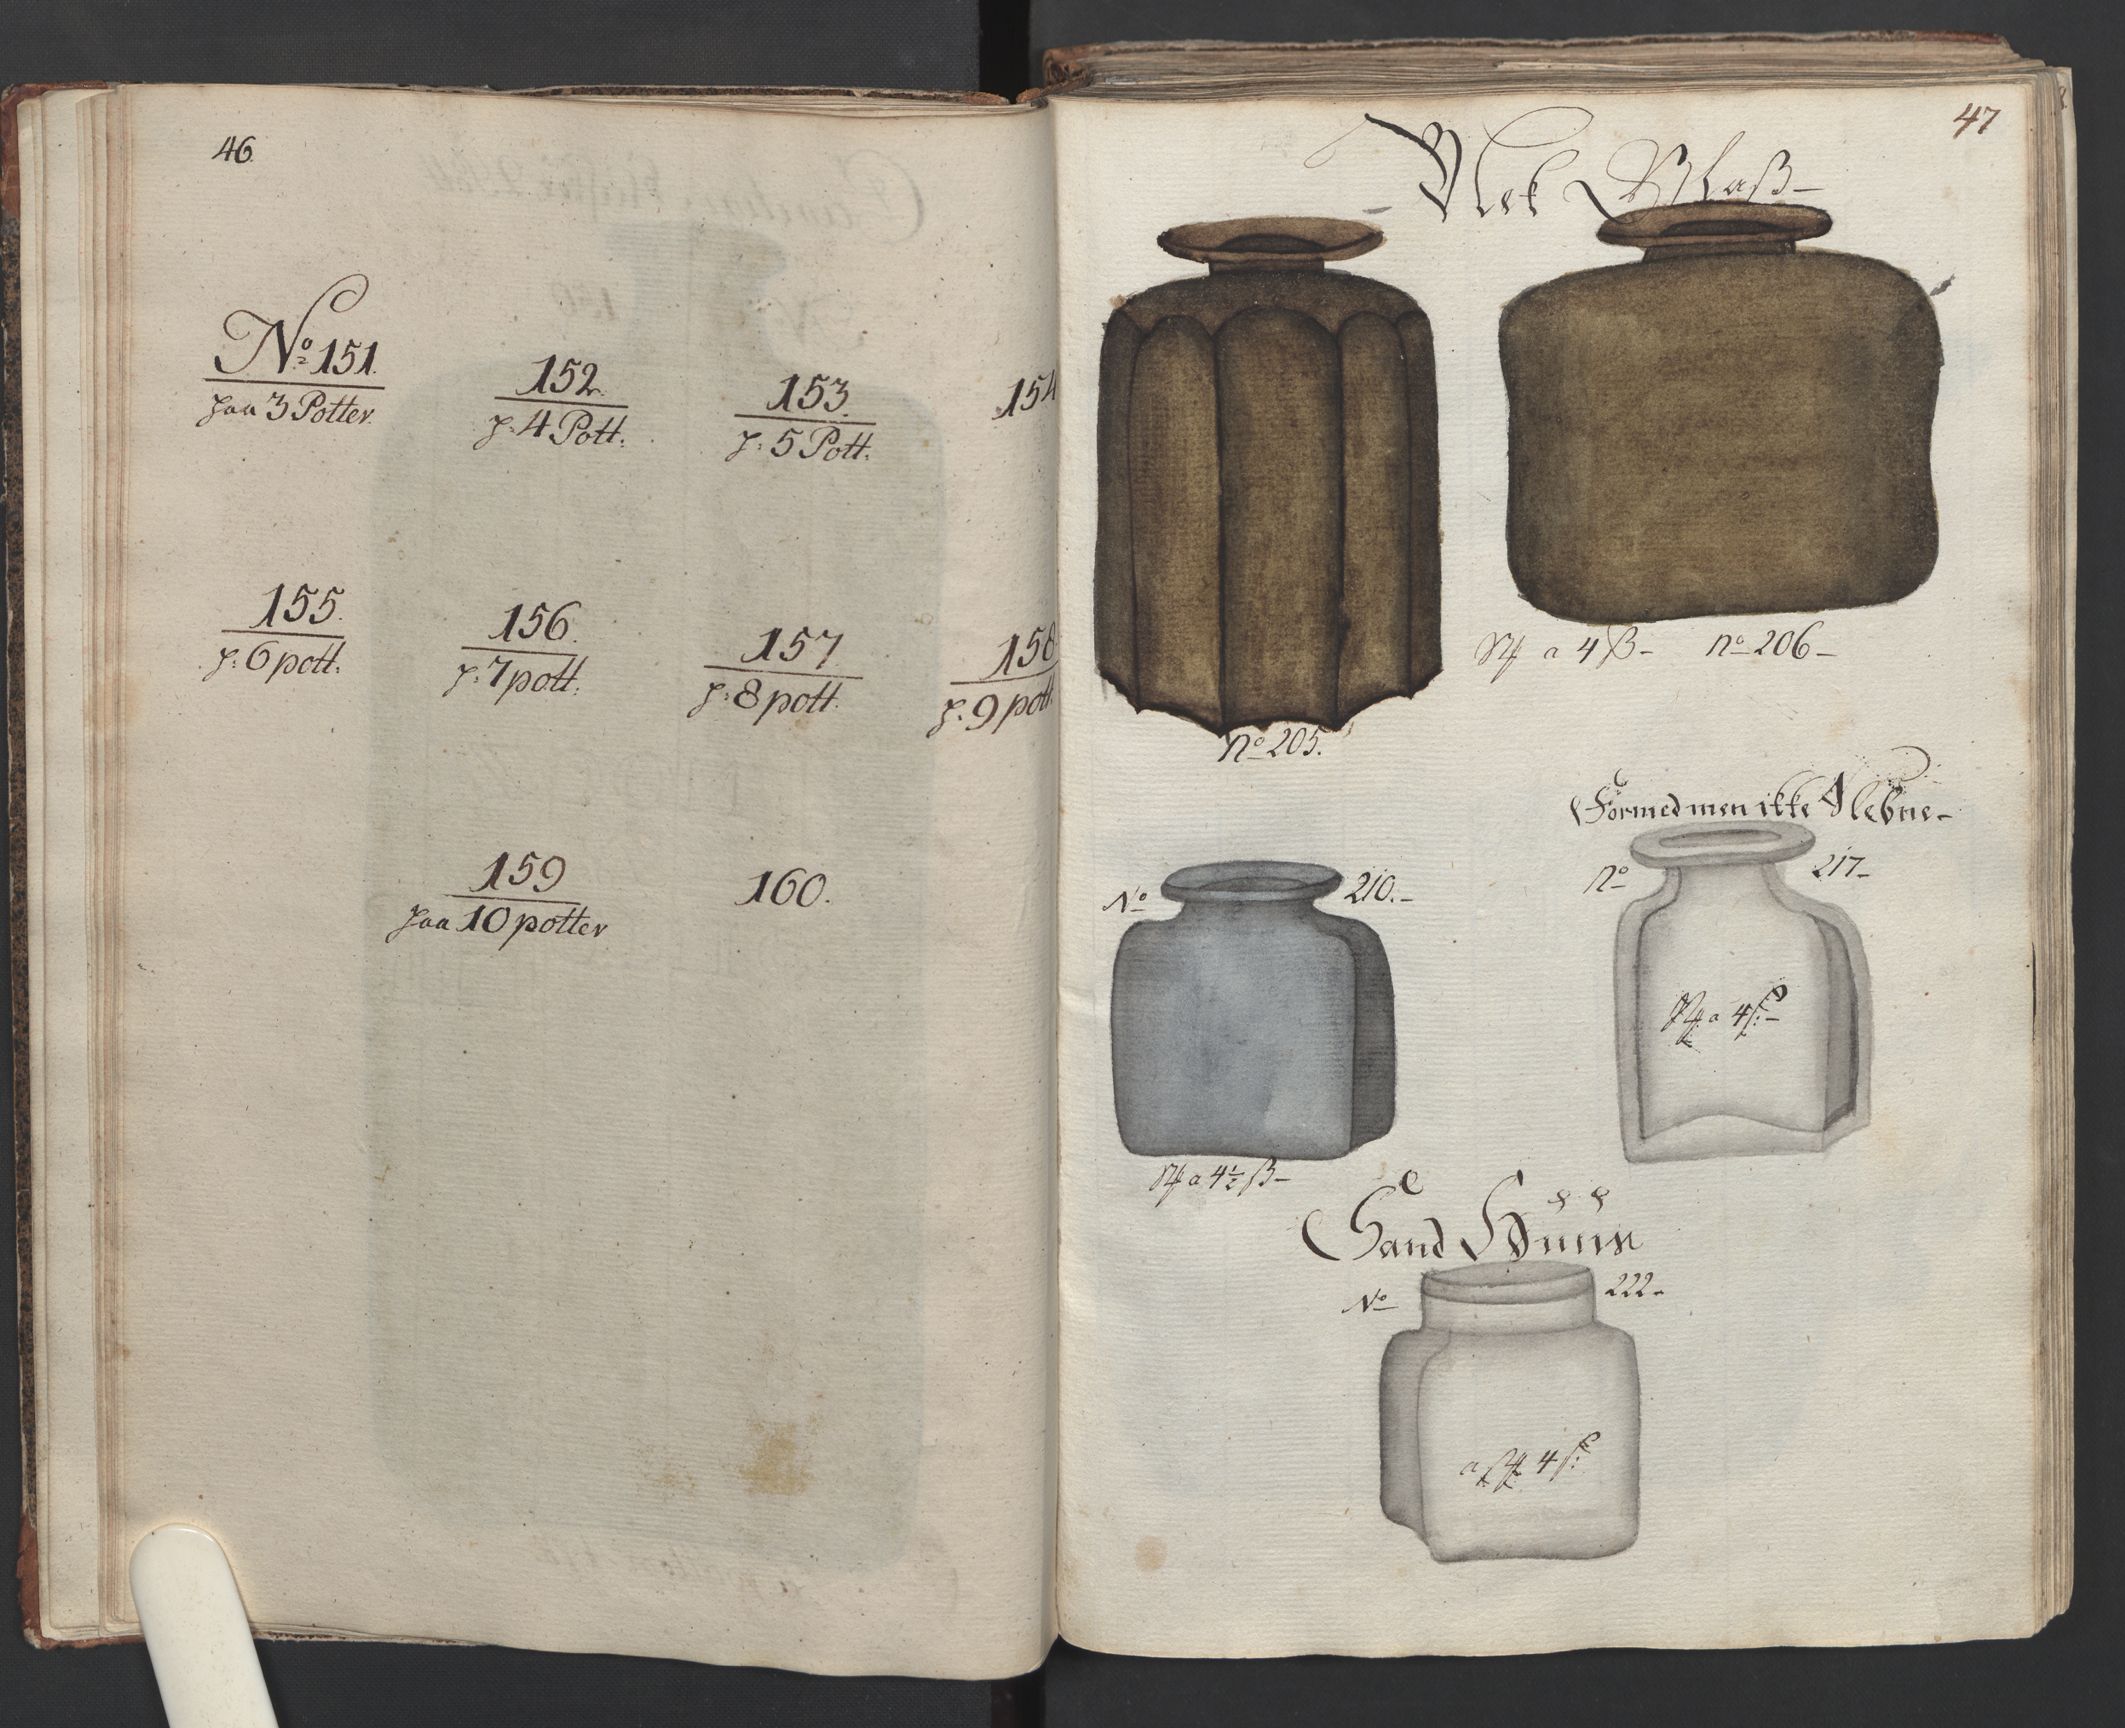 46.
No 151.
paa 3 Potter.
152.
p: 4 Pott:
153.
p: 5 Pott:
154
155.
p: 6 pott:
156.
p: 7 pott:
157
p: 8 pott.
158
p: 9 pott:
159
paa 10 potter
160.
47
Blek Glaß
No 205.
a 4 ß No 206
Formed men ikke Slebne
No 210.
a 4 1/2 ß
No 217
a 4 ß
Sand Huus
No 222
a 4 ß